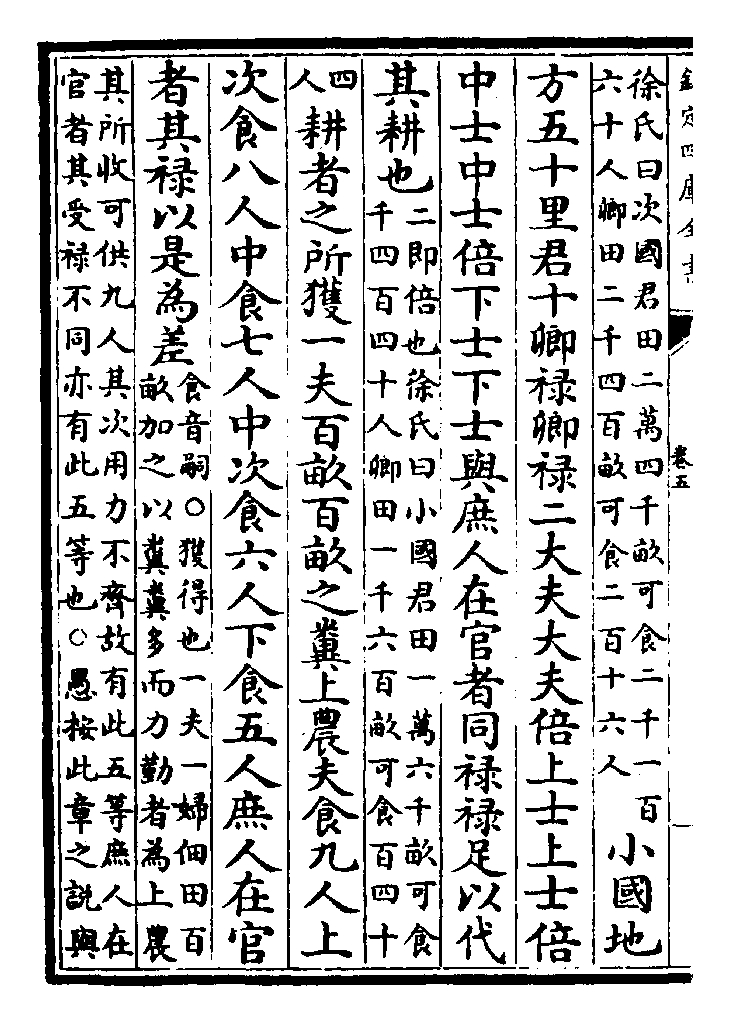 欽定四庫全書
卷五
徐氏曰次國君田二萬四千畝可食二千一百
六十人卿田二千四百畝可食二百十六人
小國地
方五十里君十卿祿卿祿二大夫大夫倍上士上士倍
中士中士倍下士下士與庶人在官者同祿祿足以代
其耕也
二即倍也徐氏曰小國君田一萬六千畝可食
千四百四十人卿田一千六百畝可食百四十
四人
耕者之所獲一夫百畝百畝之糞上農夫食九人上
次食八人中食七人中次食六人下食五人庶人在官
者其祿以是為差
食音嗣○獲得也一夫一婦佃田百
畝加之以糞糞多而力勤者為上農
其所收可供九人其次用力不齊故有此五等庶人在
官者其受祿不同亦有此五等也○愚按此章之説與